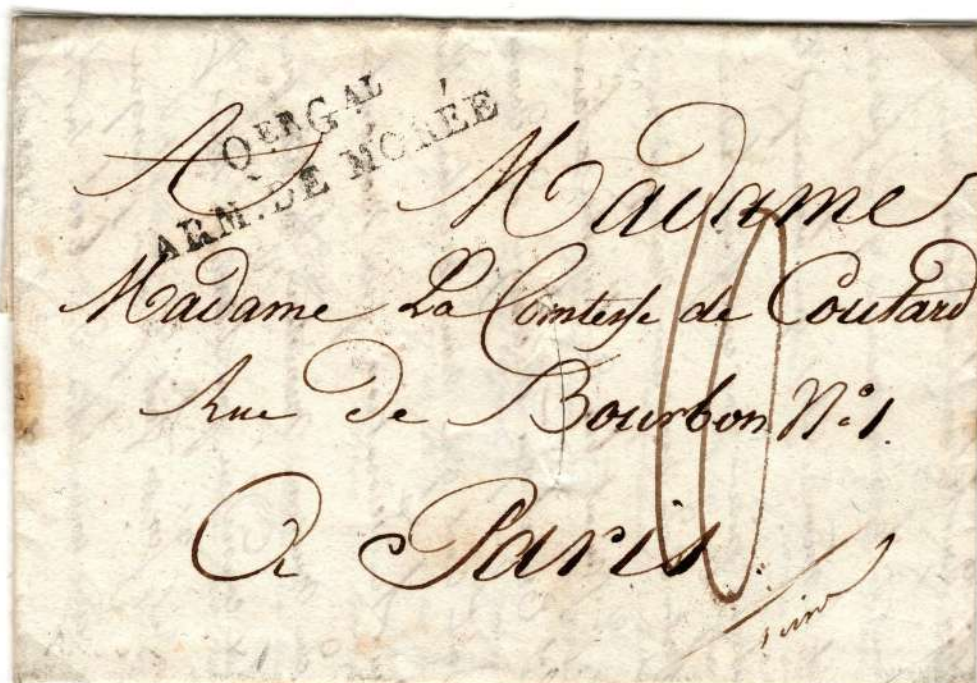 QERGAL
ARM. DE MORÉE
A Madame
Madame La Comtesse de Coutard
Rue De Bourbon N° 1.
A Paris.